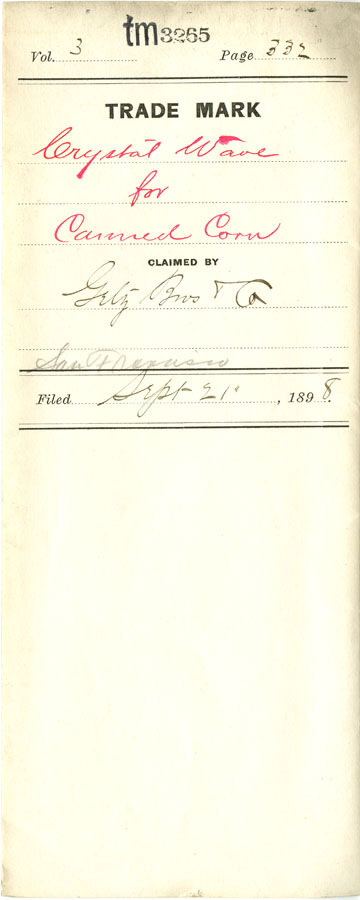 tm3265
Vol. 3 Page 332
TRADE MARK
Crystal Wave
for
Canned Corn
CLAIMED BY
Getz Bros & Co
San Francisco
Filed Sept 21 , 1898.